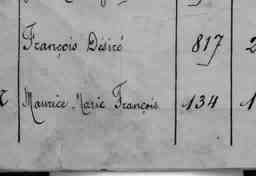 François Désiré 817 2
Maurice Marie François 134 1